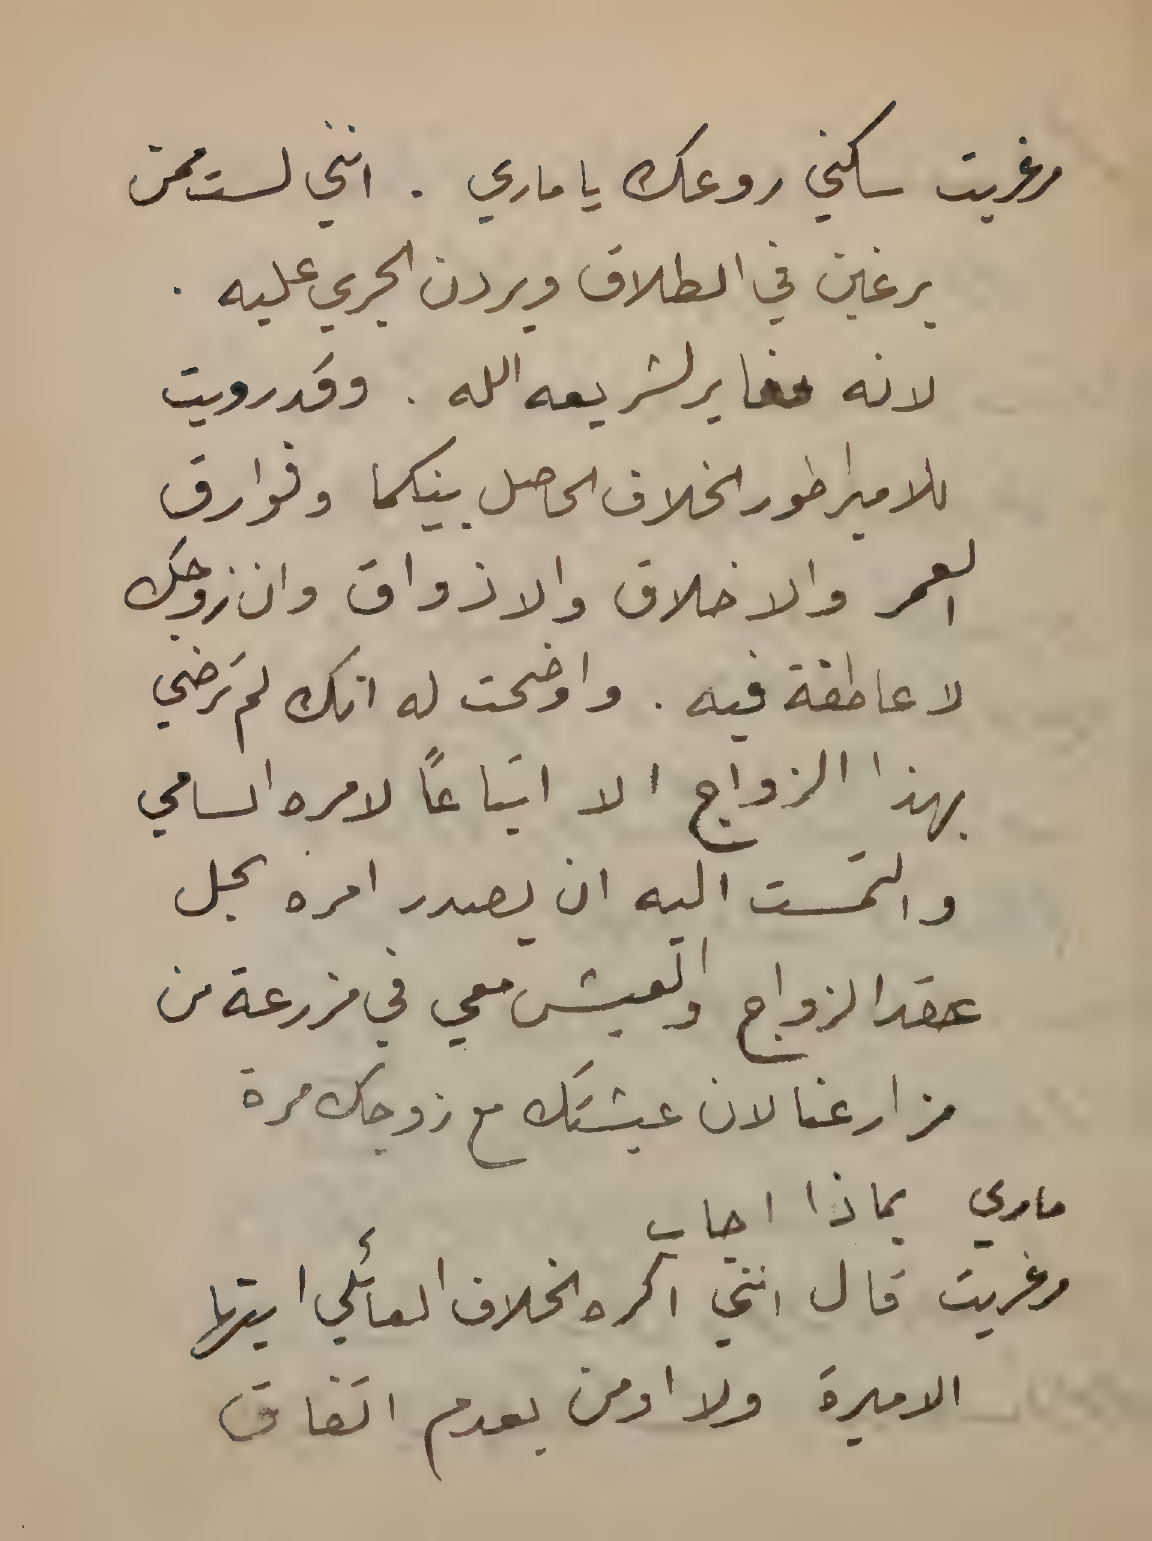 مرغريت سكني روعك يا ماري . انني لست ممن
يرغبن في الطلاق ويردن الجري عليه .
لانه مغاير لشريعه الله . وقد رويت
للامبراطور الخلاف الحاصل بينكما وفوارق
العمر والاخلاق والاذواق وان زوجك
لا عاطفة فيه . واوضحت له انك لم ترضي
بهذا الزواج الا اتباعاً لامره السامي
والتمست اليه ان يصدر امره بحل
عقد الزواج والعيش معي في مزرعة من
مزارعنا لان عيشتك مع زوجك مرة
ماري بماذا اجاب
مرغريت قال انني اكره الخلاف العائلي ايتها
الاميرة ولا اومن بعدم اتفاق